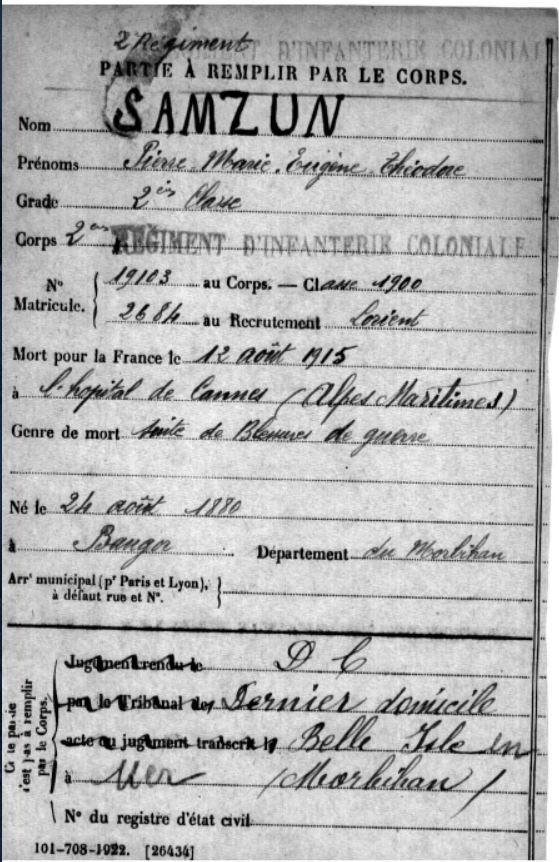 2 Régiment D'INFANTERIE COLONIAL
PARTIE À REMPLIR PAR LE CORPS.
Nom SAMZUN
Prénoms Pierre Marie Eugène Théodore
Grade 2e Classe
Corps 2e RÉGIMENT D'INFANTERIE COLONIALE
N° Matricule. { 19103 au Corps. — Classe 1900
2684 au Recrutement Lorient
Mort pour la France le 12 août 1915
à l'hopital de Cannes (Alpes Maritimes)
Genre de mort suite de Blessures de guerre
Né le 24 août 1880
à Bangor Département du Morbihan
Arrt municipal (pr Paris et Lyon), à défaut rue et N°. }
Cette partie n'est pas à remplir par le Corps.
Jugement rendu le D C
par le Tribunal de Dernier domicile
acte ou jugement transcrit le Belle Isle en
à Mer (Morbihan)
N° du registre d'état civil
101-708-1922. [26434]